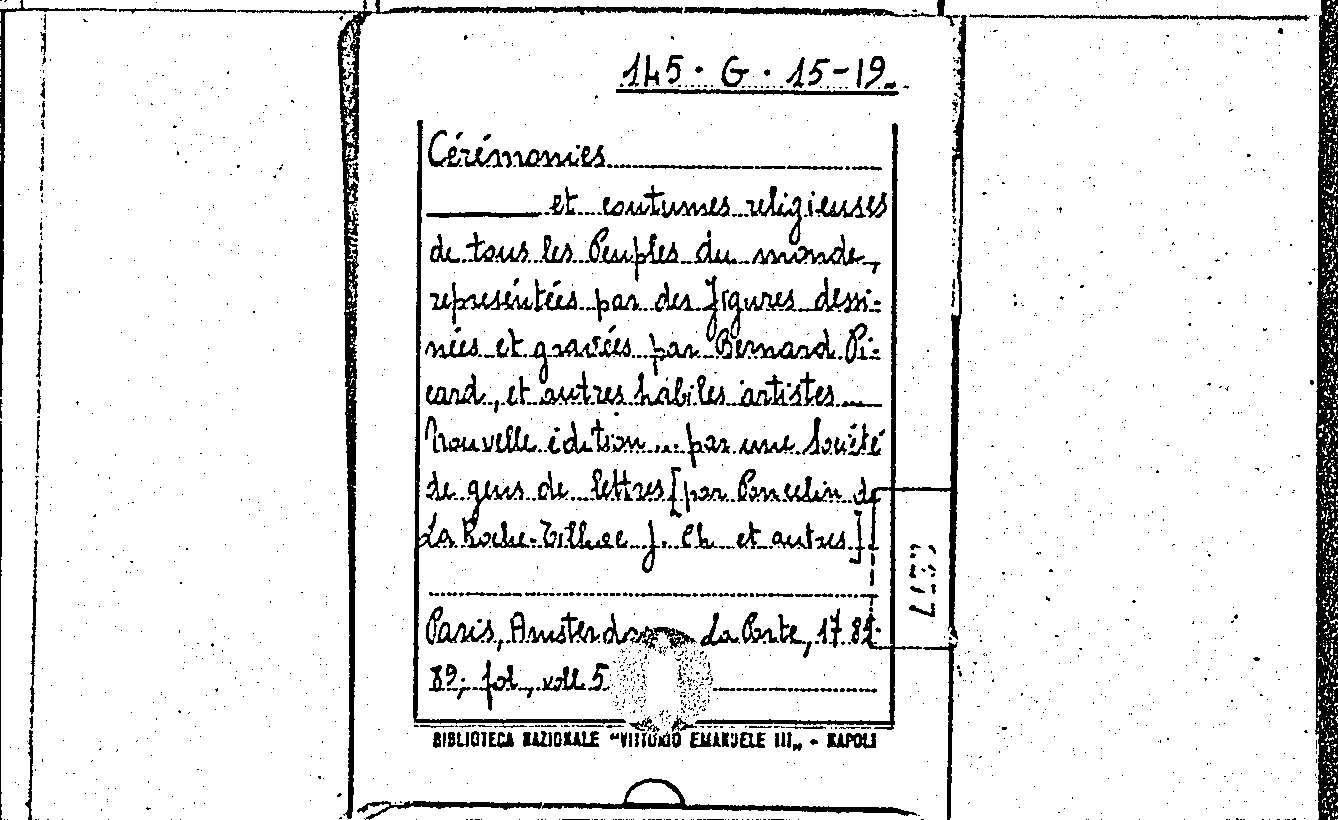 145 · G · 15-19
Cérémonies
et coutumes religieuses
de tous les Peuples du monde,
representées par des figures dessi-
nées et gravées par Bernard Pi-
card, et autres habiles artistes...
Nouvelle édition ... par une Société
de gens de lettres [par Poncelin de
La Roche-Tilhac J. Ch. et autres]
Paris, Amsterdam La Porte,
89; fol., voll. 5
BIBLIOTECA NAZIONALE "VITTORIO EMANUELE III„ - NAPOLI